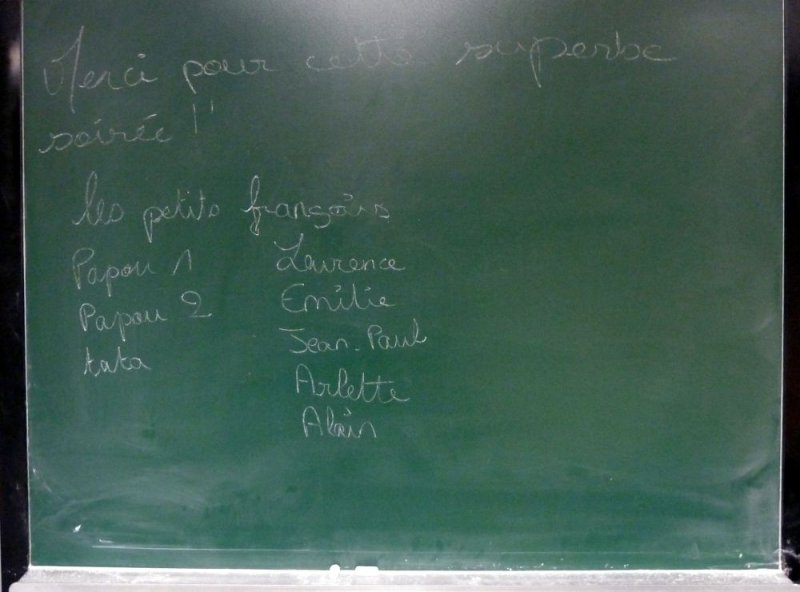 Merci pour cette superbe
soirée !!
les petits français
Papou 1 Laurence
Papou 2 Emilie
tata Jean-Paul
Arlette
Alain